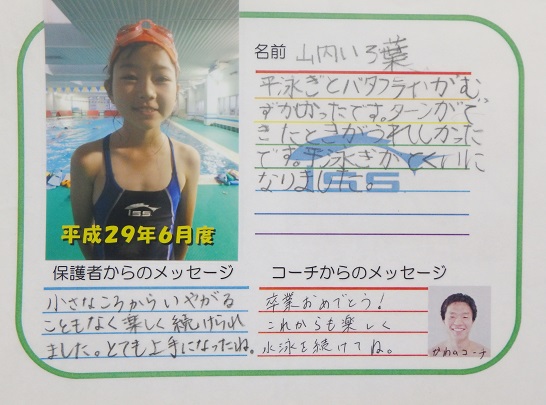 名前 山内いろ葉
平泳ぎとバタフライがむ
ずかしかったです。ターンがで
きたときがうれしかった
です。平泳ぎがとくいに
なりました。
ISS
ISS
平成29年6月度
保護者からのメッセージ
小さなころからいやがる
こともなく楽しく続けられ
ました。とても上手になったね。
コーチからのメッセージ
卒業おめでとう!
これからも楽しく
水泳を続けてね。
コーチ